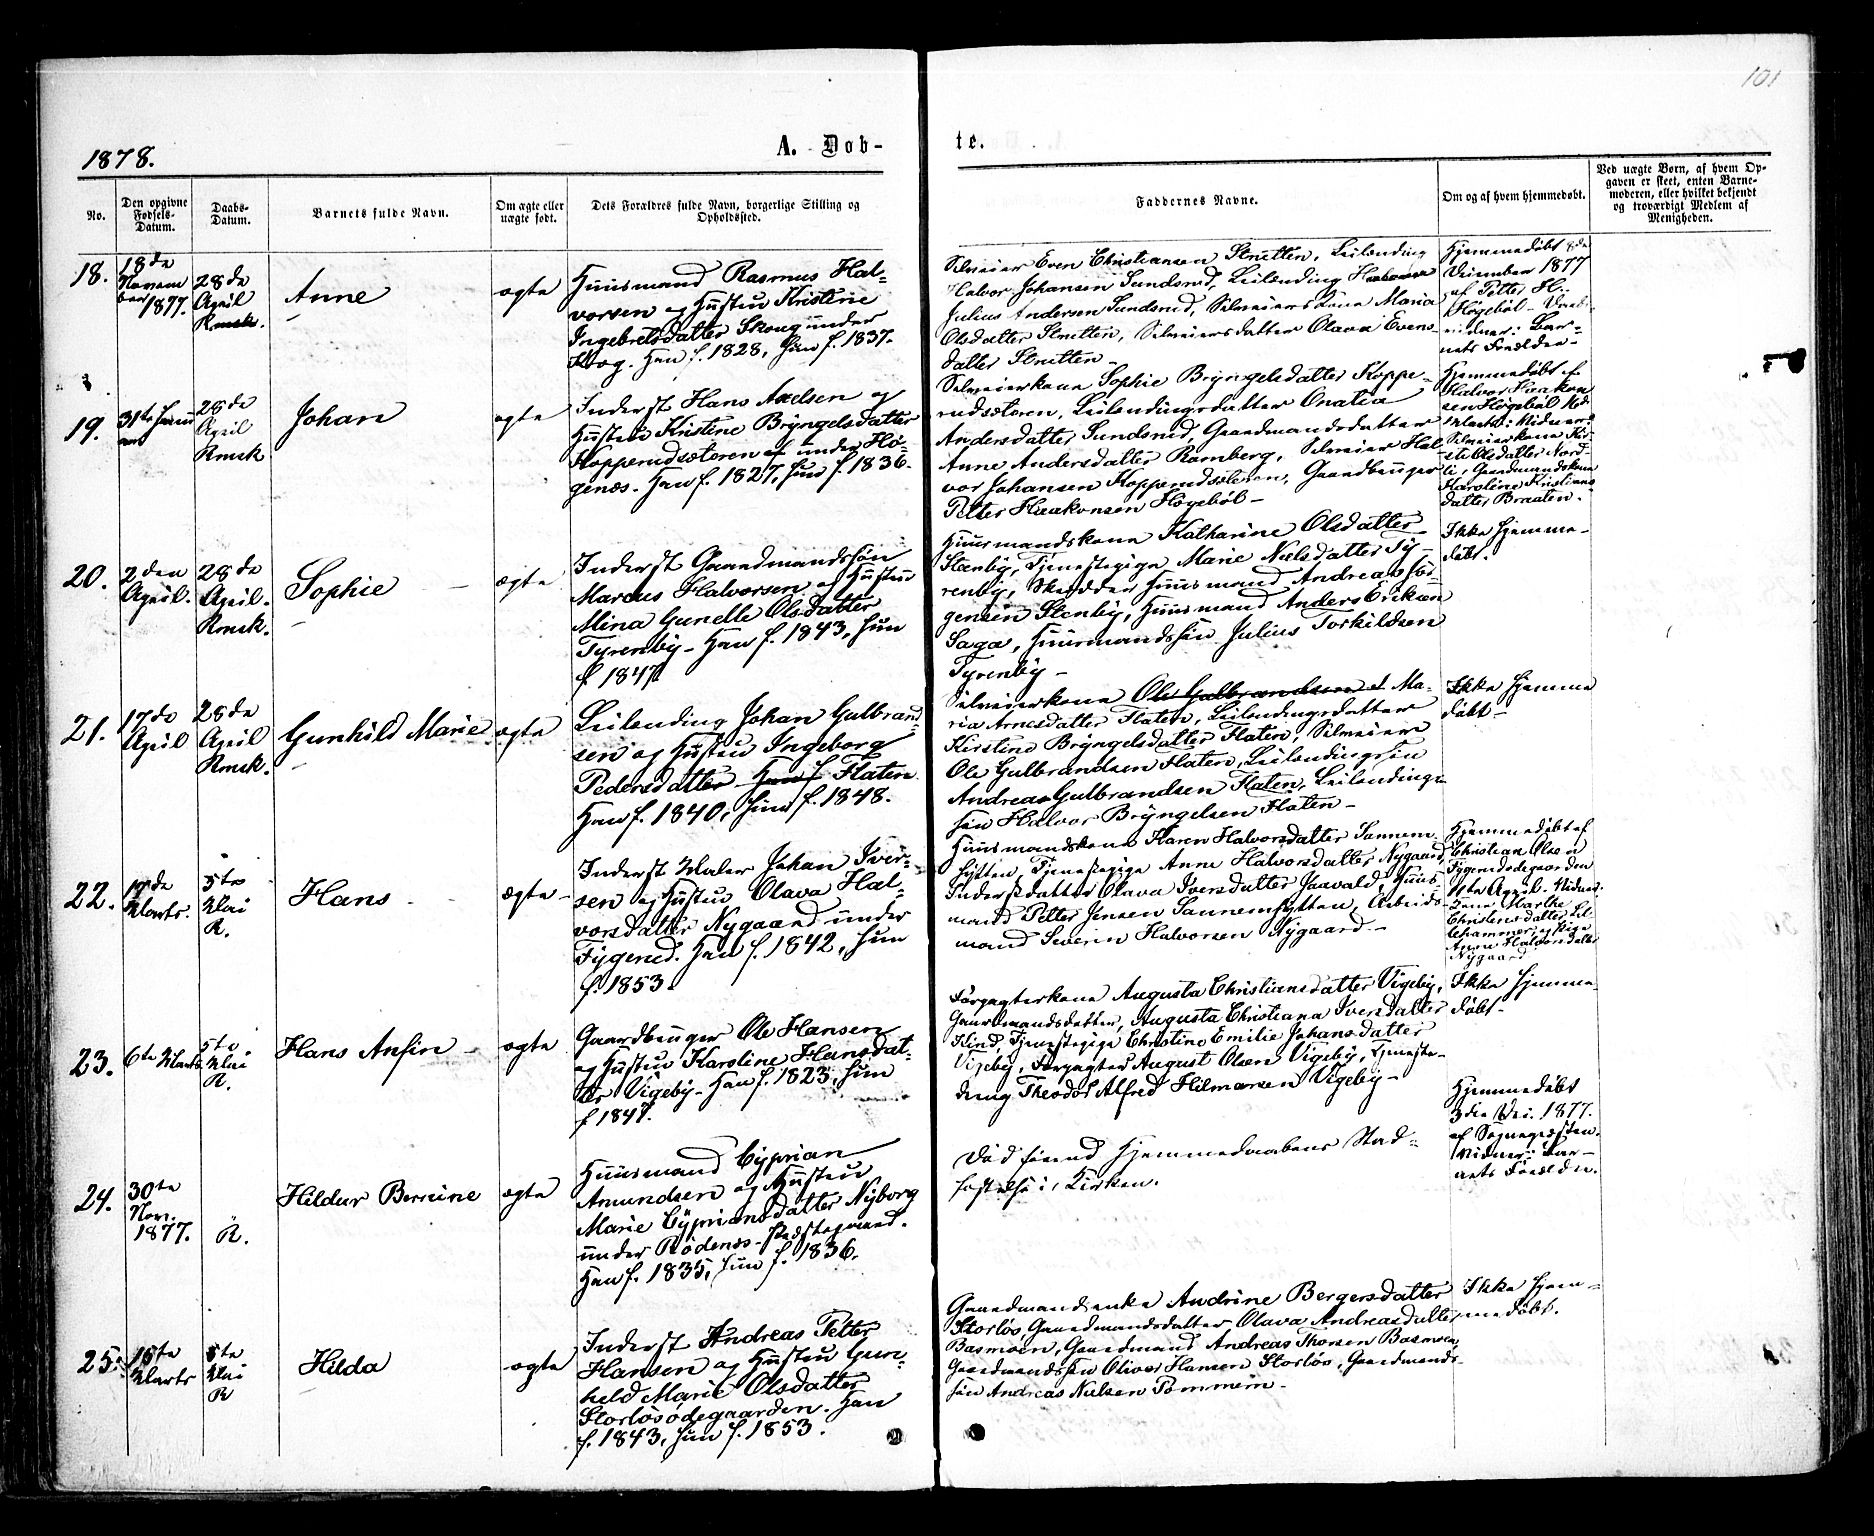 101
1878.
A. Døb-
te.
No.
Den opgivne Fødsels-Datum.
Daabs-Datum.
Barnets fulde Navn.
Om ægte eller uægte født.
Dets Forældres fulde Navn, borgerlige Stilling og Opholdssted.
Faddernes Navne.
Om og af hvem hjemmedøbt.
Ved uægte Børn, af hvem Op-
gaven er skeet, enten Barne-
moderen, eller hvilket bekjendt
og troværdigt Medlem af
Menigheden.
18.
18de
Novem
ber
1877.
28de
April
Rmsk.
Anne
ægte
Huusmand Rasmus Hal-
vorsen og Hustru Kristine
Ingebretsdatter Skoug under
Krog. Han f. 1828, hun f. 1837.
Selveier Even Christiansen Strutten, Leilending
Halvor Johansen Sundsrud, Leilending
Julius Andersen Sundsrud, Selveierskone Maria
Olsdatter Strutten, Selveiersdatter Olava Evens-
datter Strutten -
Hjemmedøbt 8de
December 1877
af Petter H.
Høgebøl - 
Bar-
nets Forældre -
19.
31te Janu
ar
28de
April
Rmsk
Johan
ægte
Inderst Hans Axelsen og
Hustru Kristine Bryngelsdatter
Kopperudsætoren under Hö-
genæs. Han f. 1827, hun f. 1836.
Selveierkone Sophie Bryngelsdatter Koppe-
rudsætoren, Leilendingsdatter Onatia
Andersdatter Sundsrud, Gaardmandsdatter
Anne Andersdatter Ramberg, Selveier Hal-
vor Johansen Kopperudsæteren, Gaardbruger
Petter Haakonsen Høgebøl -
Hjemmedøbt af
Halvor Haakon
sen Høgebøl
Selveierkone
Olsdatter Nord-
li, Gaardmandskone
Karoline Kristians
datter Braaten.
20.
2den
April.
28de
April.
Rmsk.
Sophie
ægte
Inderst Gaardmandssøn
Marcus Halvorsen og Hustru
Mina Gunelle Olsdatter
Tyrenby - Han f. 1843, hun
f. 1847.
Huusmandskone Katharine Olsdatter
Stenby, Tjenestepige Marie Nielsdatter Ty-
renby, Skrædder Huusmand Andreas Jör-
gensen Stenby, Huusmand Anders Eriksen
Saga, Huusmandssön Julius Torkildsen
Tyrenby -
Ikke hjemme-
døbt.
21.
17de
April
28de
April
Rmsk.
Gunhild Marie
ægte
Leilending Johan Gulbrand-
sen og Hustru Ingeborg
Pedersdatter Han f. Flaten.
Han f. 1840, hun f. 1848.
Selveierkone Ole Gulbrandsen Ma-
ria Arnesdatter Flaten, Leilendingsdatter
Kirstine Bryngelsdatter Flaten, Selveier
Ole Gulbrandsen Flaten, Leilendingsøn
Andreas Gulbrandsen Flaten, Leilendings-
søn Halvor Bryngelsen Flaten -
Ikke hjemme
døbt -
22.
17de
Marts.
5te
Mai
R.
Hans
ægte
Inderst Maler Johan Iver-
sen og Hustru Olava Hal-
vorsdatter Nygaard under
Tygerud. Han f. 1842, hun
f. 1853.
Huusmandskone Karen Halvorsdatter Sannem
hytten, Tjenestepige Anne Halvorsdatter Nygaard,
Inderstdatter Olava Iversdatter Jaavald, Huus-
mand Petter Jensen Sannemhytten, Arbeids-
mand Severin Halvorsen Nygaard -
Hjemmedøbt af
Christian Olsen
Tygerudødegaarden
11te April. Vidner:
Marthe
Christensdatter Lil-
lehammer, og Pige
Anne Halvorsdatter
Nygaard
23.
6te Marts
5te
Mai
R.
Hans Anfin
ægte
Gaardbruger Ole Hansen
og Hustru Karoline Hansdat-
ter Vigeby - Han f. 1823, hun
f 1847.
Forpagterkone Augusta Christiansdatter Vigeby,
Gaardmandsdatter Augusta Christiana Iversdatter
Lind, Tjenestepige Christine Emilie Johansdatter
Vigeby, Forpagter August Olsen Vigeby, Tjeneste-
dreng Theodor Alfred Hilmarsen Vigeby -
Ikke hjemme-
døbt -
24.
30te
Nov.
1877.
R.
Hildur Bernine
ægte
Huusmand Cyprian
Amundsen og Hustru
Marie Cypriansdatter Nyborg
under Rödenæs Prestegaard.
Han f. 1835, hun f. 1836.
Död førend Hjemmedaabens Stad-
fæstelse i Kirken.
Hjemmedøbt
3die Dec. 1877.
af Sognepræsten.
Vidner: Bar-
nets Forældre.
25.
16te
Marts
5te
Mai
R
Hilda
ægte
Inderst Andreas Petter
Hansen og Hustru Gun-
hild Marie Olsdatter
Storlösödegaarden. Han
f. 1843, hun f. 1853.
Gaardmandsenke Andrine Bergersdatter
Storløs, Gaardmandsdatter Olava Andreasdatter
Basmoen, Gaardmand Andreas Thorsen Basmoen
Gaardmandssøn Oliver Hansen Storløs, Gaardmands-
søn Andreas Nielsen Pommern -
Ikke hjem-
medøbt.